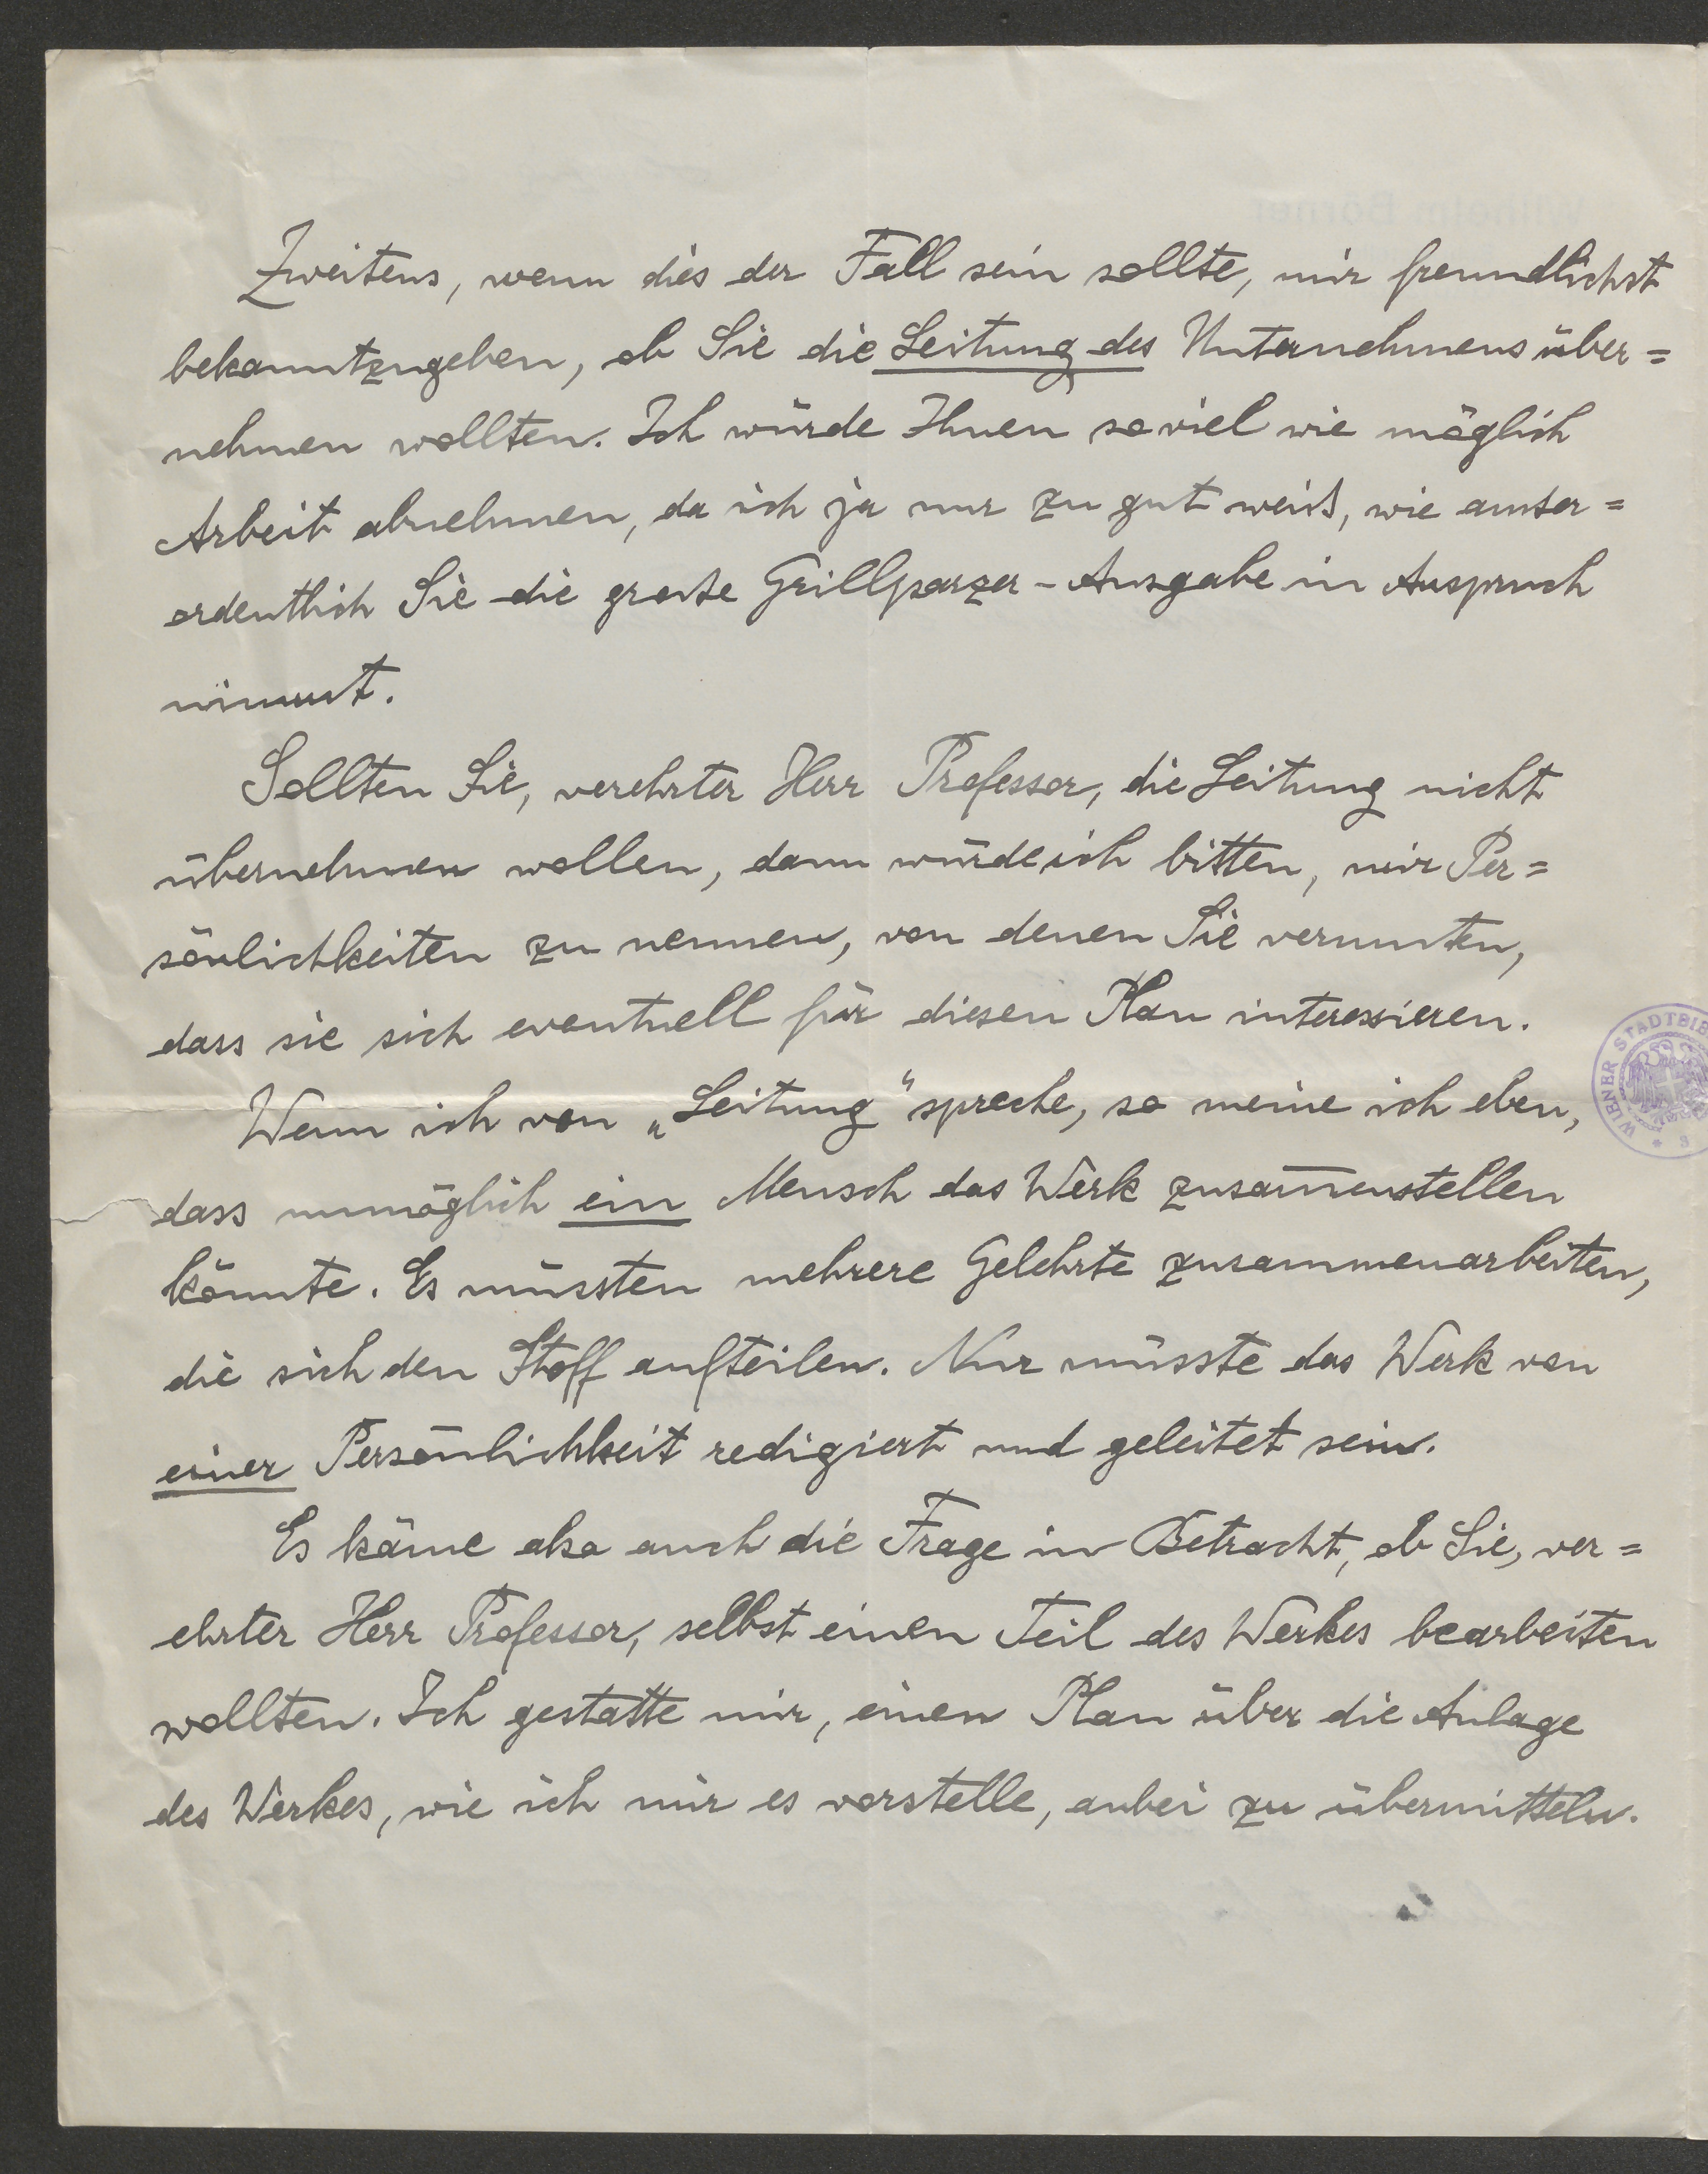 Zweitens, wenn dies der Fall sein sollte, mir freundlichst
bekanntzugeben, ob Sie die Leitung des Unternehmens über=
nehmen wollten. Ich würde Ihnen soviel wie möglich
Arbeit abnehmen, da ich ja nur zu gut weiß, wie außer=
ordentlich Sie die große Grillparzer-Ausgabe in Anspruch
nimmt.
Sollten Sie, verehrter Herr Professor, die Leitung nicht
übernehmen wollen, dann würde ich bitten, mir Per=
sönlichkeiten zu nennen, von denen Sie vermuten,
dass sie sich eventuell für diesen Plan interessieren.
Wenn ich von „Leitung" spreche, so meine ich eben,
dass unmöglich ein Mensch das Werk zusam̅enstellen
könnte. Es müssten mehrere Gelehrte zusammenarbeiten,
die sich den Stoff aufteilen. Nur müsste das Werk von
einer Persönlichkeit redigiert und geleitet sein.
Es käme also auch die Frage in Betracht, ob Sie, ver=
ehrter Herr Professor, selbst einen Teil des Werkes bearbeiten
wollten. Ich gestatte mir, einen Plan über die Anlage
des Werkes, wie ich mir es vorstelle, anbei zu übermitteln.
WIENER STADTBIB
Wilhelm Börner